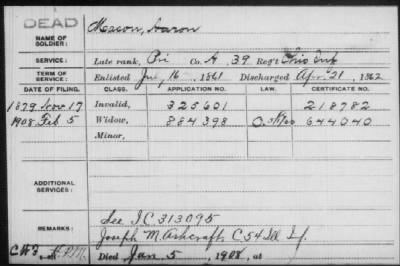 DEAD
NAME OF SOLDIER: Mason, Aaron
SERVICE: Late rank, Pri Co. A, 39 Reg't Ohio Inf
TERM OF SERVICE: Enlisted July 16, 1861 Discharged Apr. 21, 1862
DATE OF FILING. CLASS. APPLICATION NO. LAW. CERTIFICATE NO.
1879 Nov. 17 Invalid, 325601 218782
1908 Feb 5 Widow, 884398 644040
Minor,
ADDITIONAL SERVICES:
REMARKS: See I C 313095
Joseph M. Ashcraft, C 54 Ill If.
Died Jan 5, 1908, at